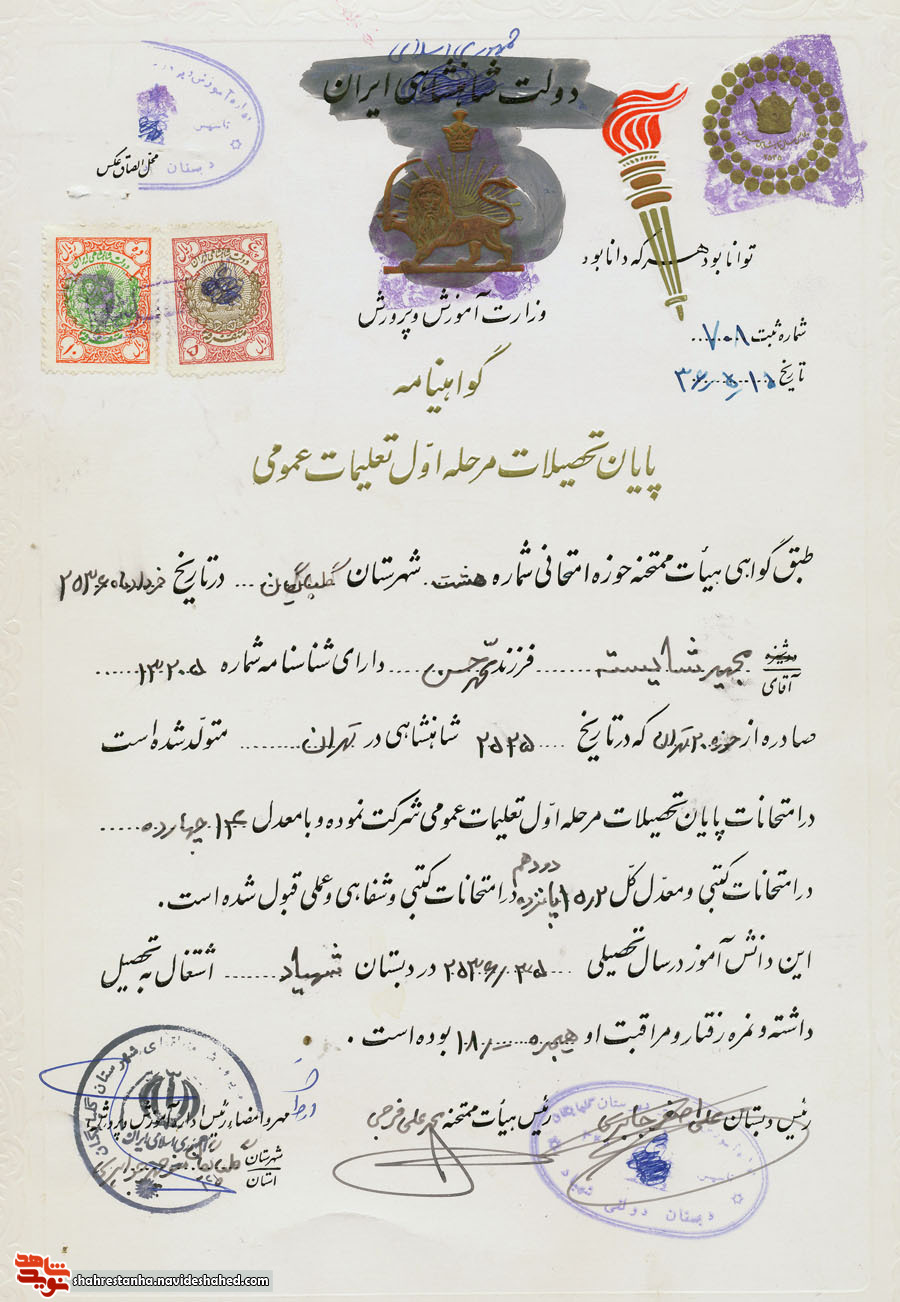 جمهوری اسلامی
دولت شاهنشاهی ایران
محل الصاق عکس
دبستان
توانا بود هر که دانا بود
وزارت آموزش و پرورش
شماره ثبت ۷۰۸
تاریخ ۳۶/۵/۱۵
گواهینامه
پایان تحصیلات مرحله اوّل تعلیمات عمومی
طبق گواهی هیأت ممتحنه حوزه امتحانی شماره هشت شهرستان گلپایگان در تاریخ خردادماه ۲۵۳۶
دوشیزه
آقای مجید شایسته فرزند محمدحسن دارای شناسنامه شماره ۱۳۲۰۵
صادره از حوزه ۲۰ تهران که در تاریخ ۲۵۲۵ شاهنشاهی در تهران متولّد شده است
در امتحانات پایان تحصیلات مرحله اوّل تعلیمات عمومی شرکت نموده و با معدل ۱۴ چهارده
در امتحانات کتبی و معدّل کلّ ۱۵٫۲ پانزده و دو دهم در امتحانات کتبی و شفاهی و عملی قبول شده است.
این دانش آموز در سال تحصیلی ۳۵-۲۵۳۶ در دبستان شهیاد اشتغال به تحصیل
داشته و نمره رفتار و مراقبت او هیجده ۱۸ بوده است.
رئیس دبستان علی اصغر جابری
رئیس هیأت ممتحنه محمدعلی فرجی
مهر و امضاء رئیس اداره آموزش و پرورش
شهرستان گلپایگان
استان
جمهوری اسلامی ایران
دبستان دولتی
نوید شاهد
shahrestanha.navideshahed.com